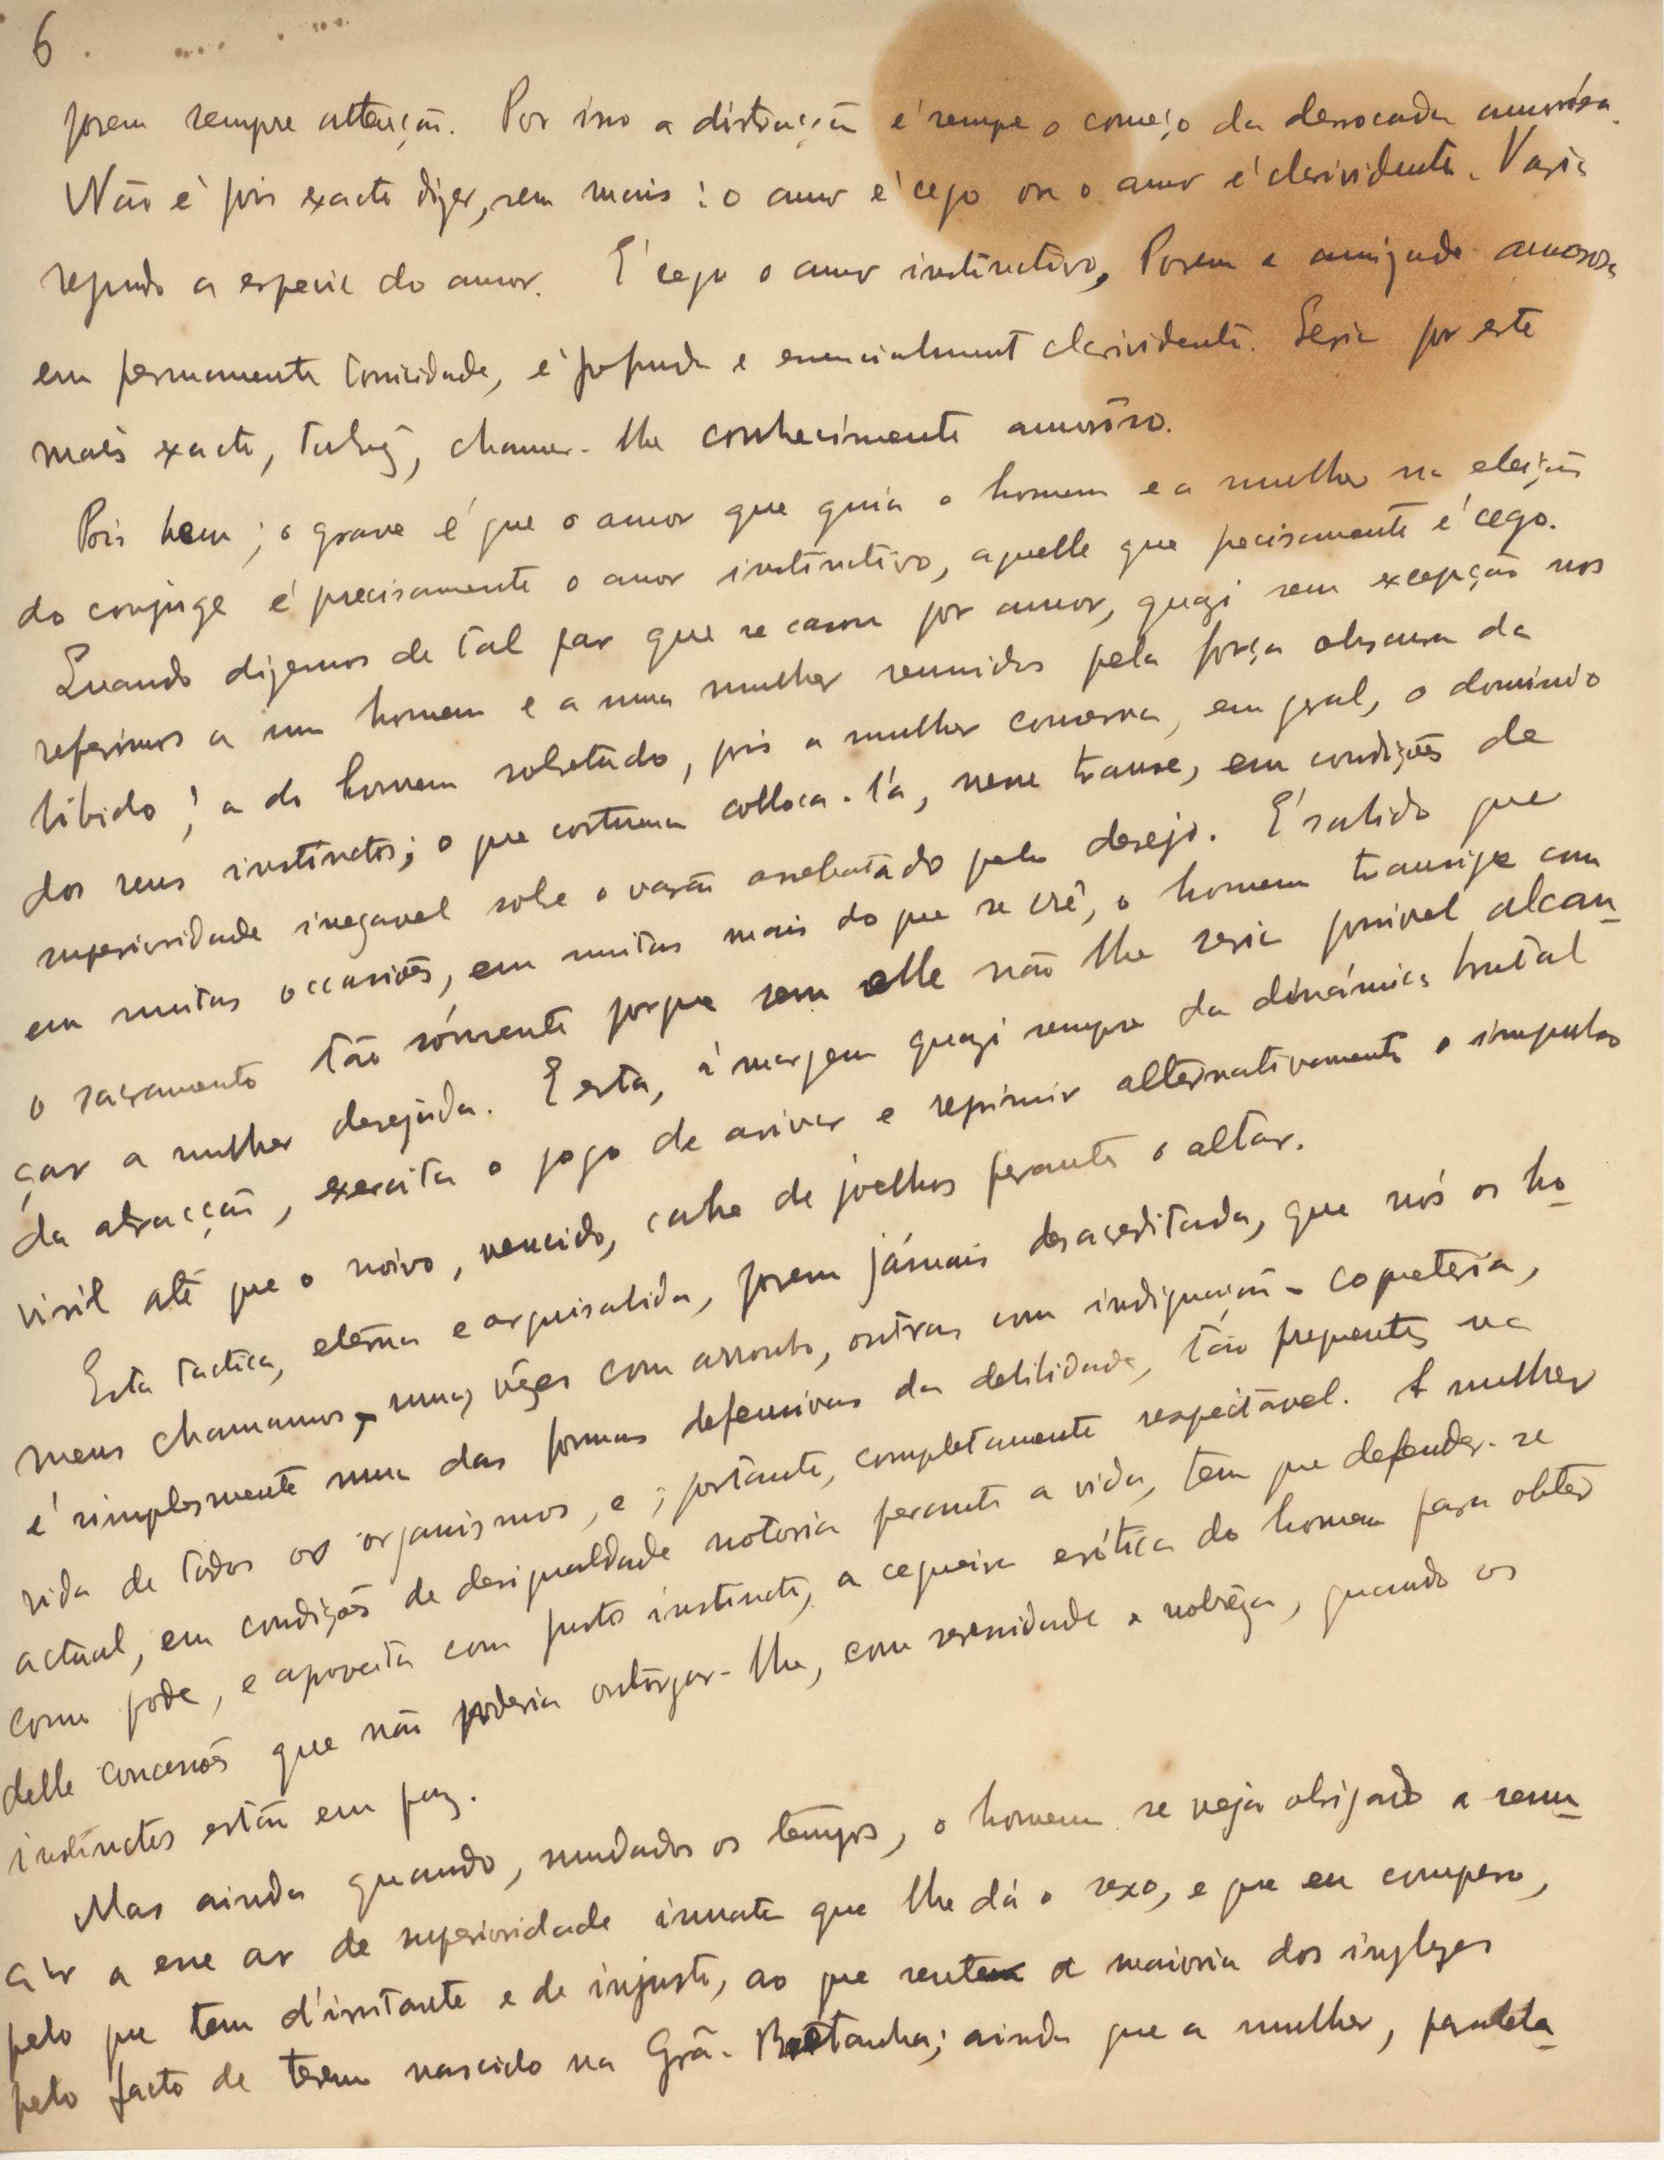 6.
porem sempre attenção. Por isso a distracção é sempre o começo da derrocada amorósa.
Não é pois exacto dizer, sem mais: o amor é cego ou o amor é clarividente. Varia
segundo a especie do amor. É cego o amor instinctivo. Porem a amizade amorosa
em permanente tonicidade, é profunda e essencialmente clarividente. Seria por este
mais exacto, talvez, chamar-lhe conhecimento amorôso.
Pois bem; o grave é que o amor que guia o homem e a mulher na eleição
do conjuge é precisamente o amor instinctivo, aquelle que precisamente é cego.
Quando dizemos de tal par que se casou por amor, quazi sem excepção nos
referimos a um homem e a uma mulher reunidos pela força obscura da
libido; a do homem sobretudo, pois a mulher conserva, em geral, o dominio
dos seus instinctos; o que costuma colloca-lá, nesse transe, em condições de
superioridade inegavel sobre o varão arrebatado pelo desejo. É sabido que
em muitas occasiões, em muitas mais do que se crê, o homem transige com
o sacramento tão sómente porque sem elle não lhe seria possivel alcan-
çar a mulher desejada. E esta, á margem quazi sempre da dinámica brutal
da atracção, exercita o jogo de avivar e reprimir alternativamente o impulso
viril até que o noivo, vencido, cahe de joelhos perante o altar.
Esta tactica, eterna e arquisabida, porem jámais desacreditada, que nós os ho-
mens chamamos, umas vêzes com assombro, outras com indignação - coqueteria,
é simplesmente uma das formas defensivas da debilidade, tão frequentes na
vida de todos os organismos, e, portanto, completamente respeitável. A mulher
actual, em condições de desigualdade notoria perante a vida, tem que defender-se
como pode, e aproveita com justo instincto, a cegueira erótica do homem para obter
delle concessões que não poderia outorgar-lhe, com serenidade e nobrêza, quando os
instinctos estão em paz.
Mas ainda quando, mudados os tempos, o homem se veja obrigado a renun-
ciar a esse ar de superioridade innata que lhe dá o sexo, e que eu comparo,
pelo que tem d'irritante e de injusto, ao que sentem a maioria dos inglezes
pelo facto de terem nascido na Grã-Bretanha; ainda que a mulher,